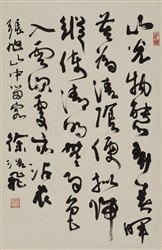 山光物態弄春暉
莫為輕陰便擬歸
縱使晴明無雨色
入雲深處亦沾衣
張旭山中留客 徐